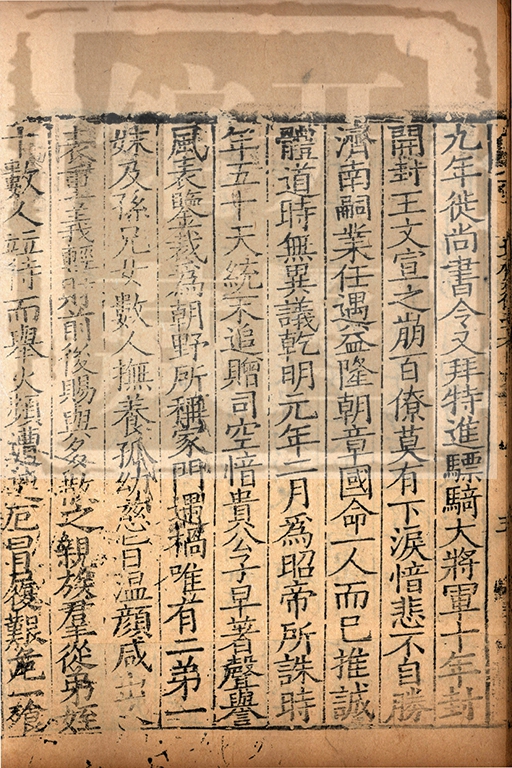 九年徙尚書令又拜特進驃騎大將軍十年封
開封王文宣之崩百僚莫有下淚愔悲不自勝
濟南嗣業任遇益隆朝章國命一人而已推誠
體道時無異議乾明元年二月爲昭帝所誅時
年五十天統末追贈司空愔貴公子早著聲譽
風表鑒裁爲朝野所稱家門遇禍唯有二弟一
妹及孫兄女數人撫養孤幼慈旨温顏咸出
表重義輕財前後賜與多散之親族羣從弟姪
十數人竝待而舉火頻遭厄冒履艱危一飡